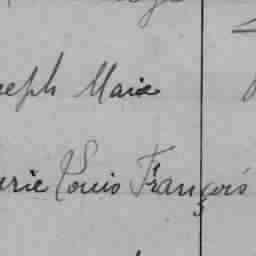 seph Marie
urie Louis François